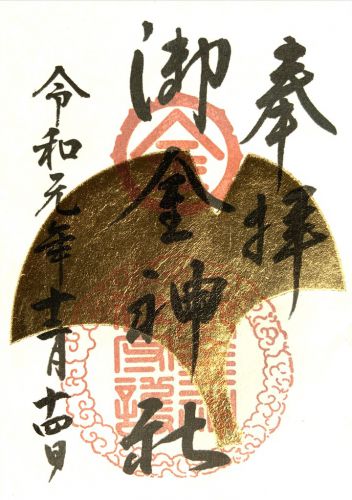 奉拝
御金神社
令和元年十二月十四日